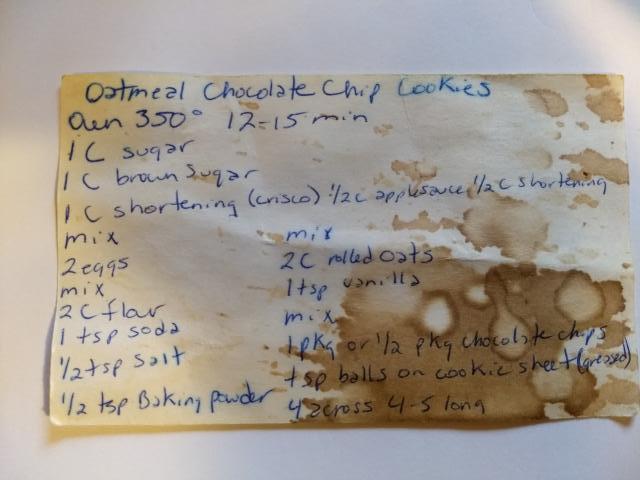 Oatmeal Chocolate Chip Cookies
Oven 350° 12-15 min
1 C sugar
1 C brown Sugar
1 C shortening (crisco) 1/2c applesauce 1/2 c shortening
mix
2 eggs
mix
2 C flour
1 tsp soda
1/2 tsp salt
1/2 tsp Baking powder
mix
2C rolled oats
1 tsp vanilla
mix
1 pkg or 1/2 pkg chocolate chips
tsp balls on cookie sheet (greased)
4 across 4-5 long